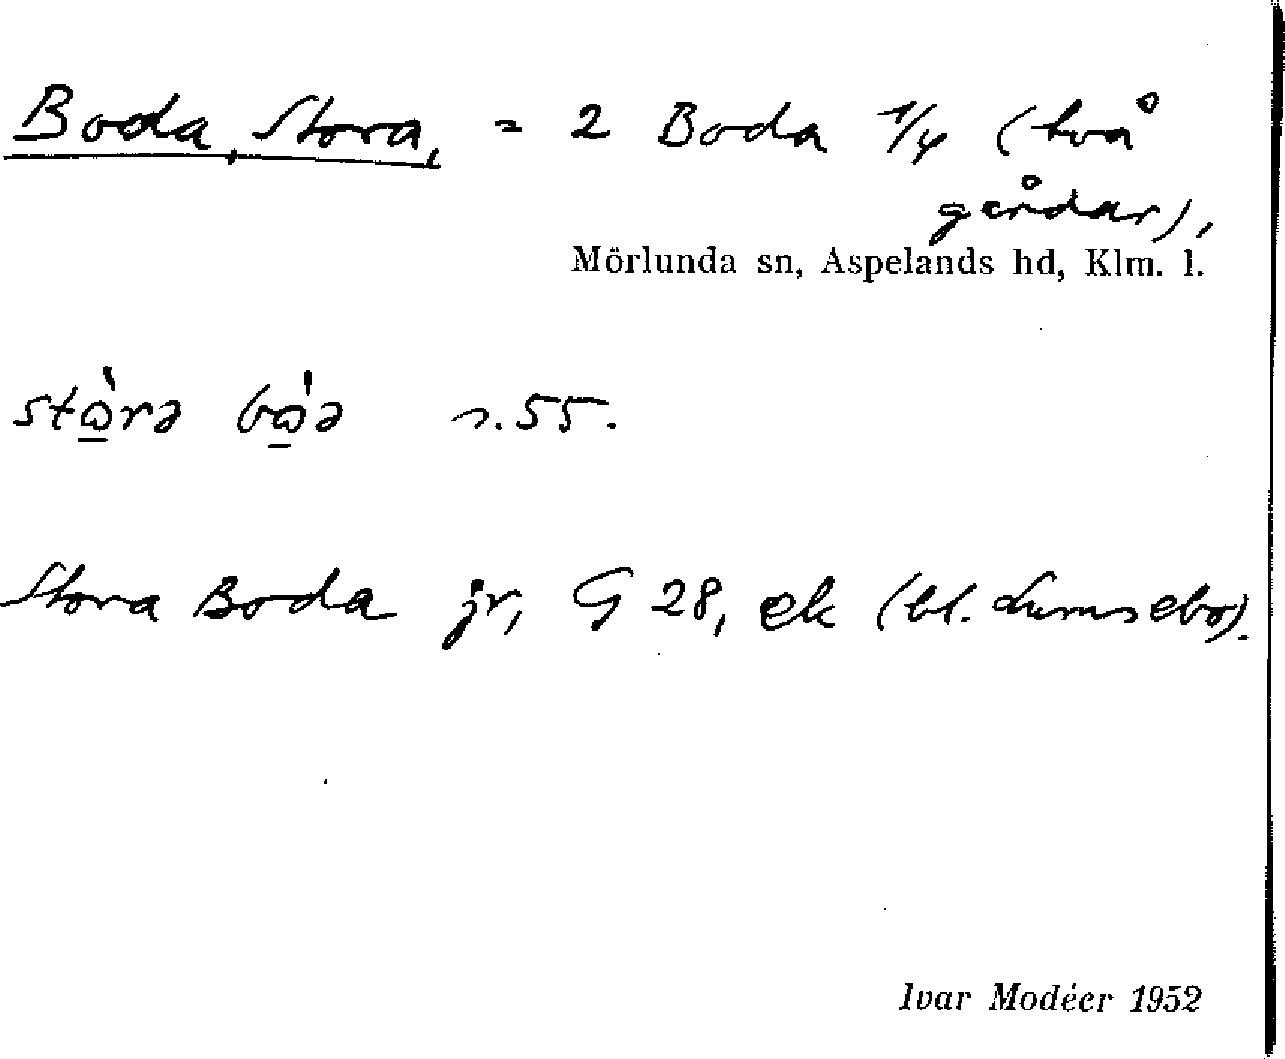 Boda, Stora, = 2 Boda 1/4 (två
gårdar),
Mörlunda sn, Aspelands hd, Klm. l.
stὼ̲rə bὼ̲ə s. 55.
Stora Boda jr, G 28, ek (bl. Lumsebo).
Ivar Modéer 1952